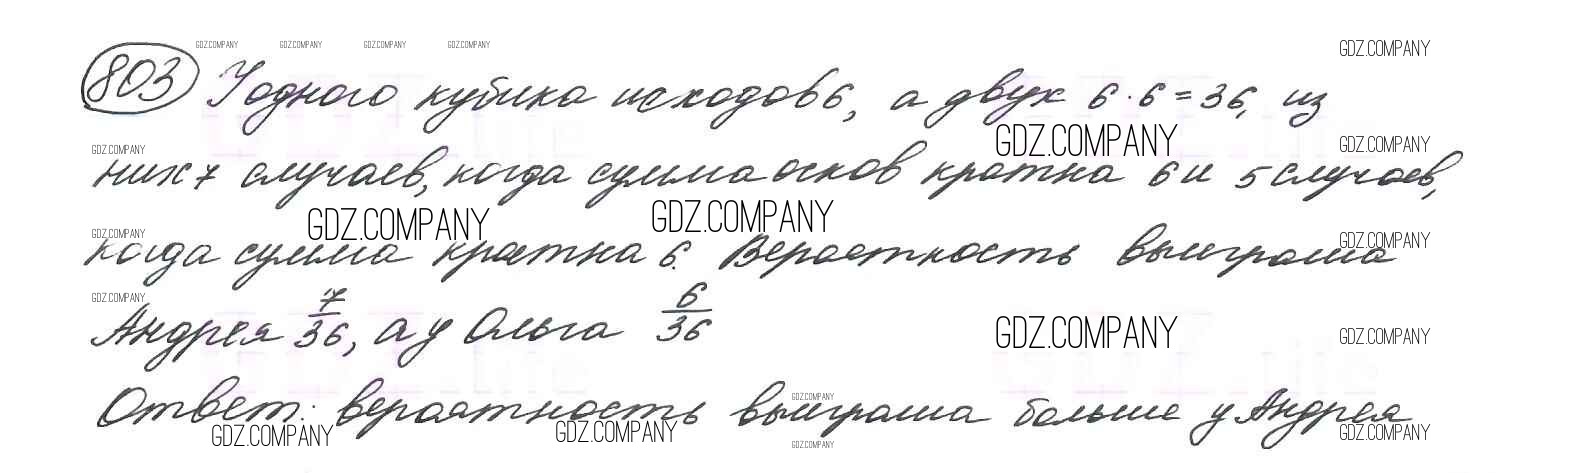 GDZ.COMPANY GDZ.COMPANY GDZ.COMPANY GDZ.COMPANY
GDZ.COMPANY
803 У одного кубика исходов 6, а двух 6 · 6 = 36, из
GDZ.COMPANY
GDZ.COMPANY GDZ.COMPANY
них 7 случаев, когда сумма очков кратна 6 и 5 случаев,
GDZ.COMPANY GDZ.COMPANY
GDZ.COMPANY GDZ.COMPANY
когда сумма кратна 6. Вероятность выиграша
GDZ.COMPANY
Андрея 7/36, а у Ольга 6/36
GDZ.COMPANY GDZ.COMPANY
GDZ.COMPANY
Ответ: вероятность выиграша больше у Андрея
GDZ.COMPANY GDZ.COMPANY GDZ.COMPANY
GDZ.COMPANY